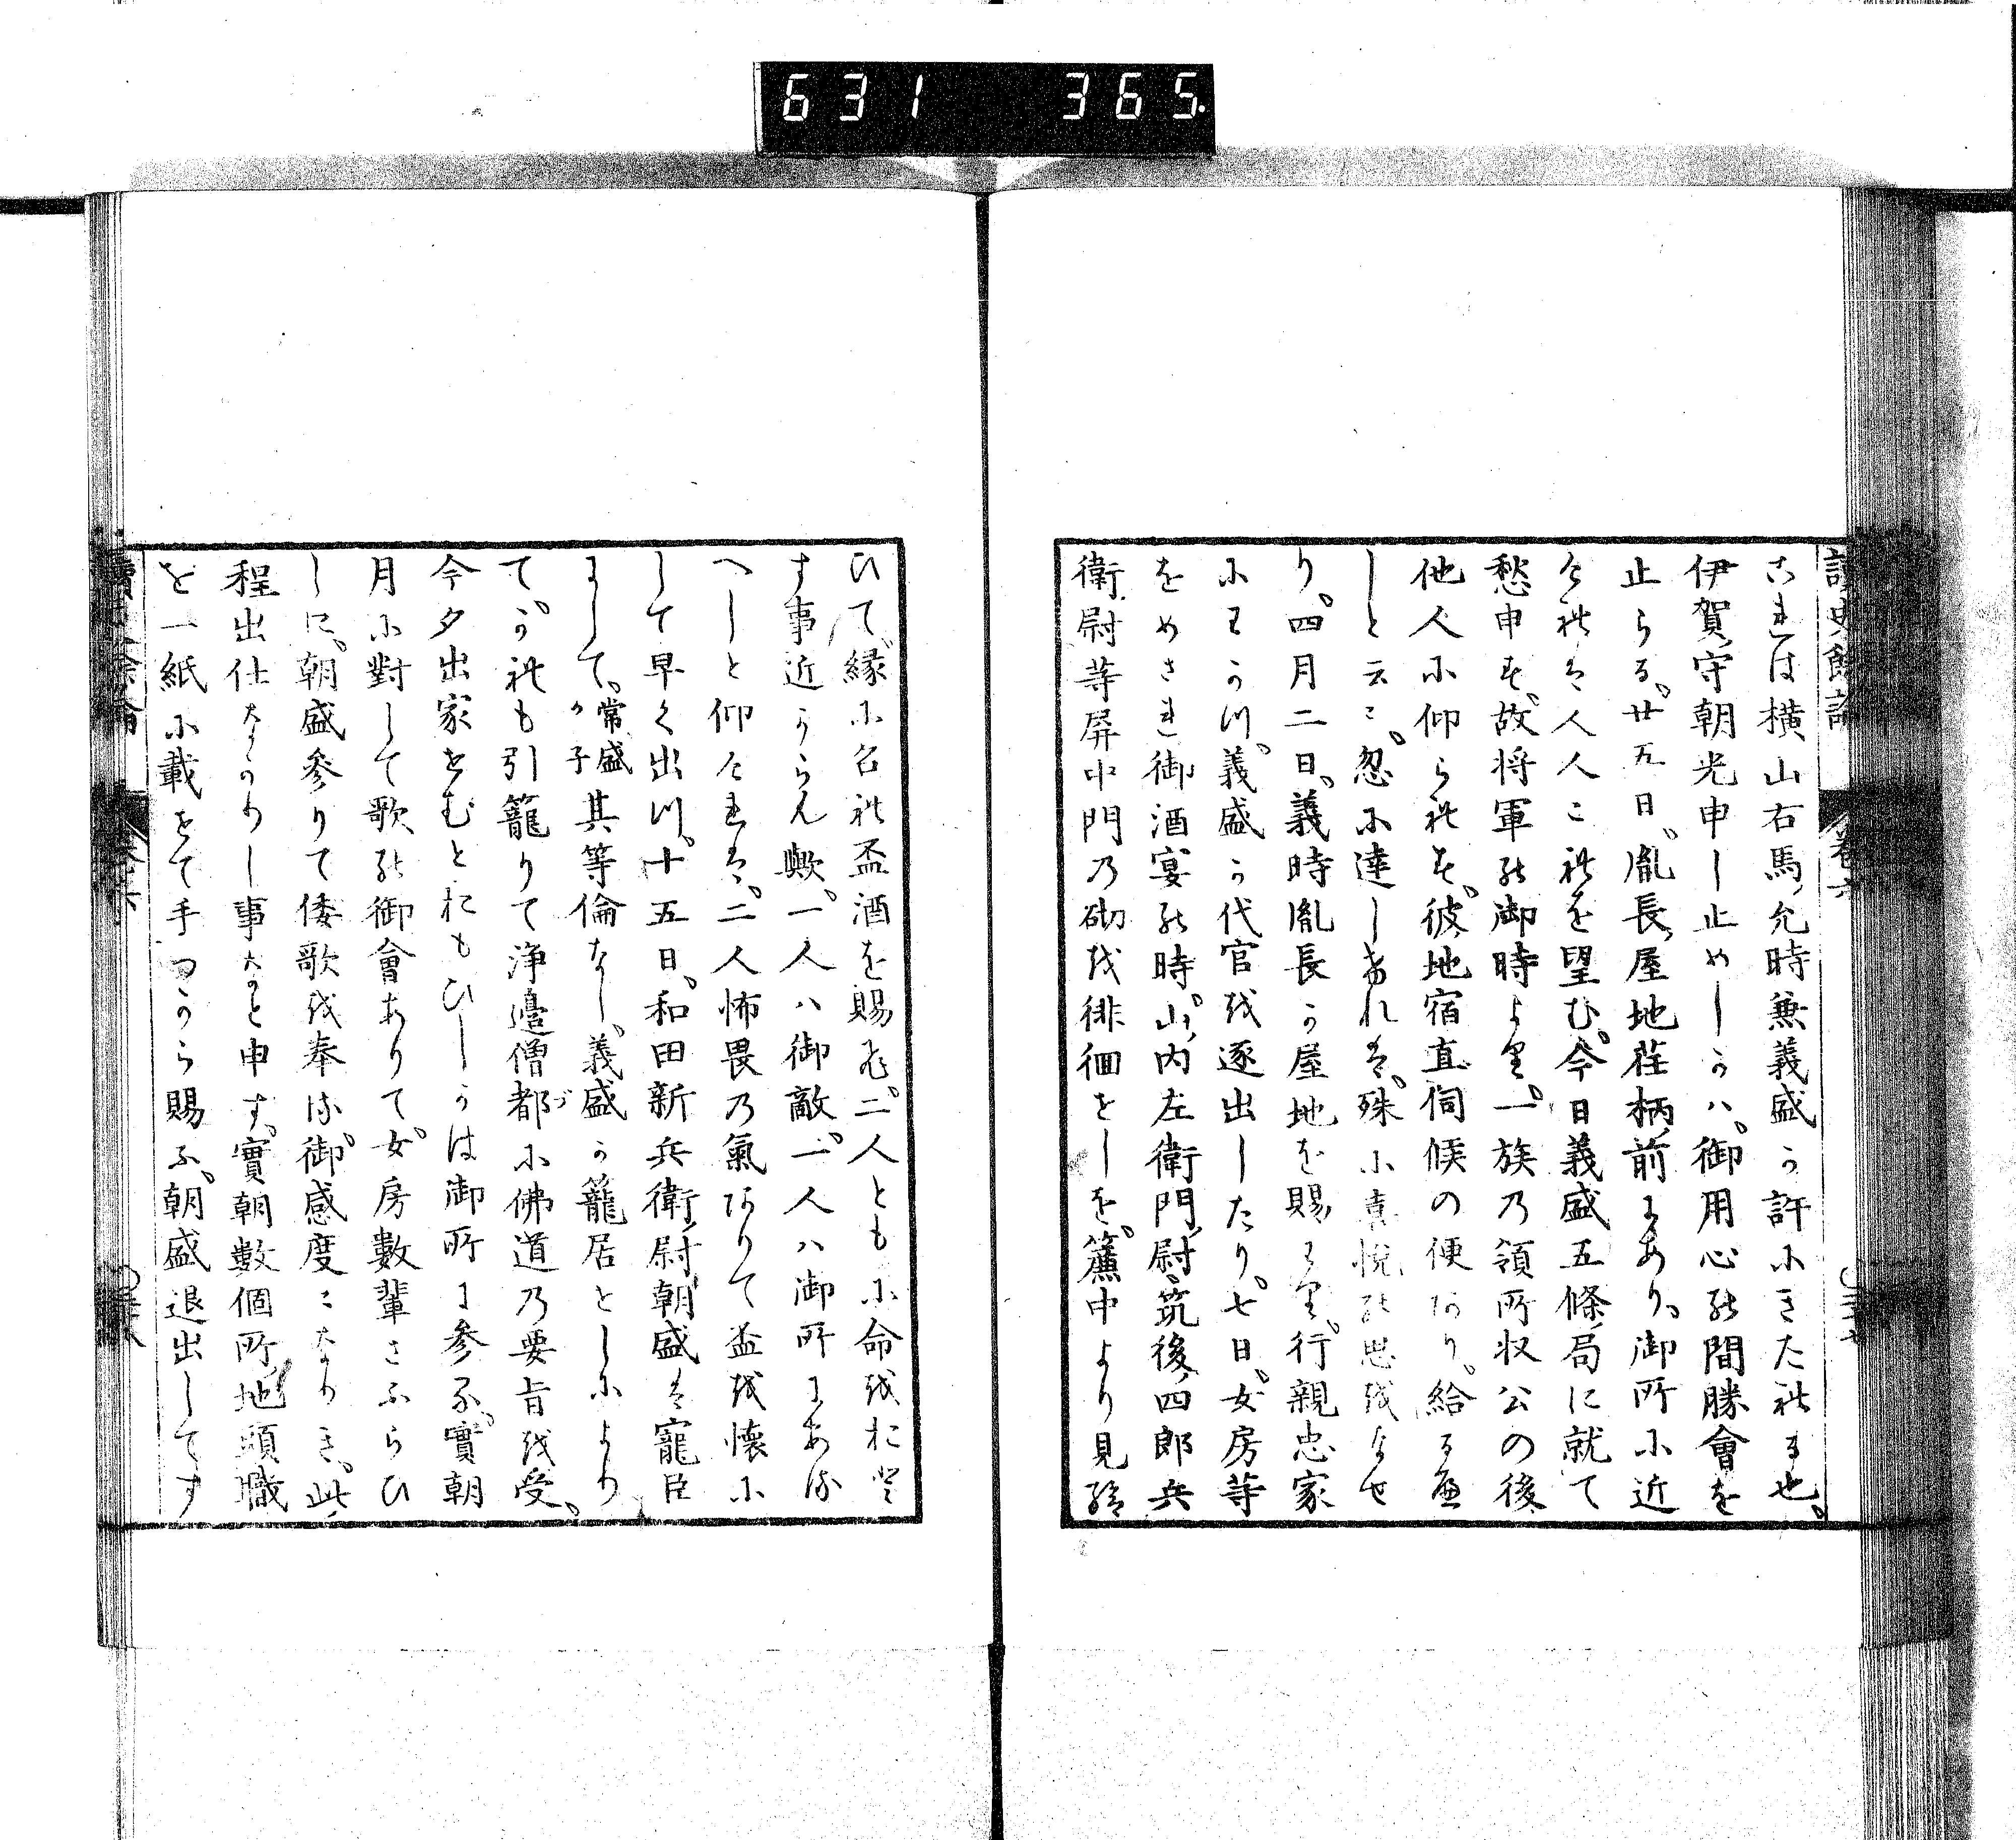 631 365.
これは横山右馬允時兼義盛か許にきたれる也。
伊賀守朝光申し止めしかハ。御用心の間勝會を
止らる。廿五日。胤長屋地荏柄前にあり。御所に近
けれは人人これを望む。今日義盛五條局に就て
愁申す。故将軍の御時より。一族の領所収公の後
他人に仰られす。彼地宿直伺候の便あり。給るへ
しと云々。忽に達しけれは。殊に喜悦の思をなせ
り。四月二日。義時胤長か屋地を賜はり。行親忠家
にわかつ。義盛か代官を逐出したり。七日。女房等
をめされ御酒宴の時。山内左衛門尉。筑後四郎兵
衛尉等屏中門の砌を徘徊をしを。簾中より見給
ひて。縁に召れ盃酒を賜ふ。二人ともに命をおと
す事近からん歟。一人ハ御敵。一人ハ御所にある
へしと仰けれは。二人怖畏の氣ありて盃を懐に
して早く出つ。十五日。和田新兵衛尉朝盛は寵臣
にして。常盛か子其等倫なし。義盛か籠居としによりて
て。かれも引籠りて浄邊僧都に佛道の要旨を受。
今夕出家せむとおもひしかは御所に参る。實朝
月に對して歌の御會ありて。女房數輩さふらひ
しに。朝盛参りて倭歌を奉る。御感度々なりき。此
程出仕なかりし事なと申す。實朝數個所地頭職
を一紙に載せて手つから賜ふ。朝盛退出してす